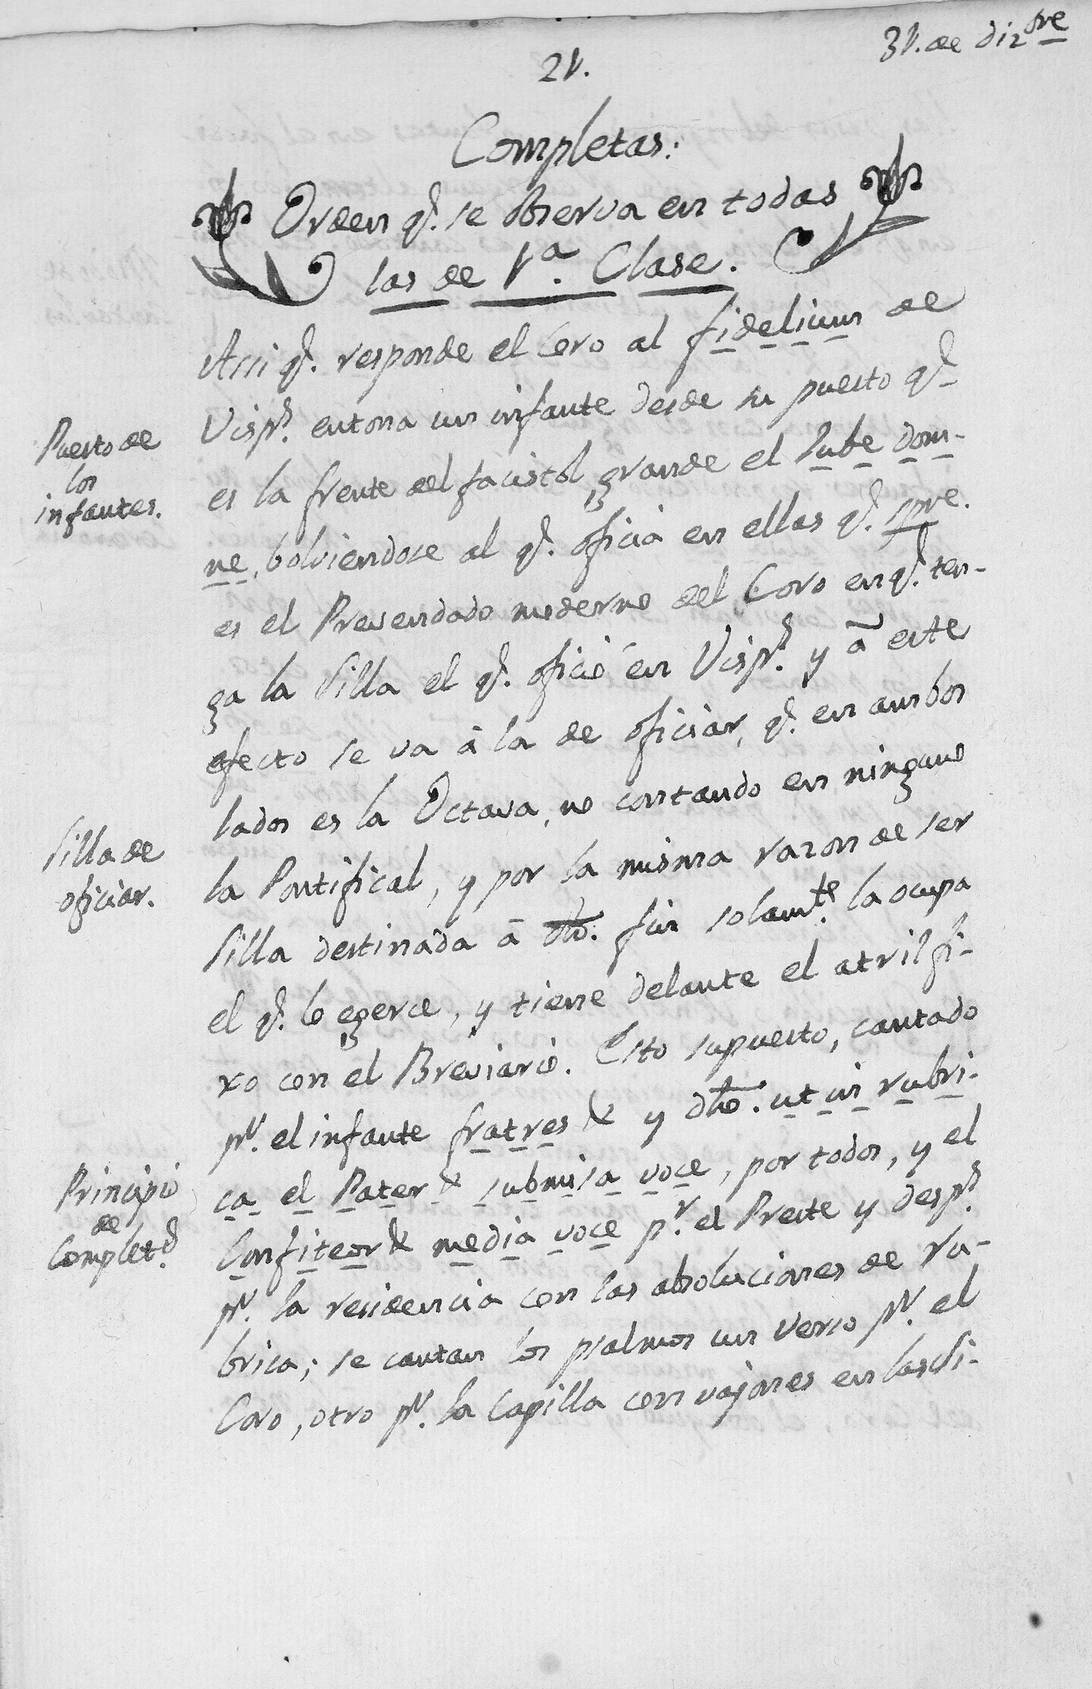 31. de diz.bre
21.
Completas:
Orden q.e se observa en todas
las de 1.a Clase.
Assi q.e responde el Coro al fidelium de
Visp.s entona un infante desde su puesto q.e
Puesto de
los
infantes.
es la frente del facistol grande el Jube dom-
ne, bolviendose al q.e oficia en ellas q.e spre.
es el Prevendado moderno del Coro en q.e ten-
ga la Silla el q.e ofició en Visp.s y â este
efecto se va à la de oficiar, q.e en ambos
lados es la Octava, no contando en ninguno
Silla de
oficiar.
la Pontifical, y por la misma razon de ser
Silla destinada â dho. fin solam.te la ocupa
el q.e lo egerce, y tiene delante el atril fi-
xo con el Breviario. Esto supuesto, cantado
p.r el infante fratres &c y dho. ut in rubri-
Principio
de
Complet.s
ca el Pater &c submisa voce, por todos, y el
Confiteor &c media voce p.r el Preste y desp.s
p.r la residencia con las absoluciones de Ru-
brica; se cantan los psalmos un Verso p.r el
Coro, otro p.r la Capilla con vajones en las di-